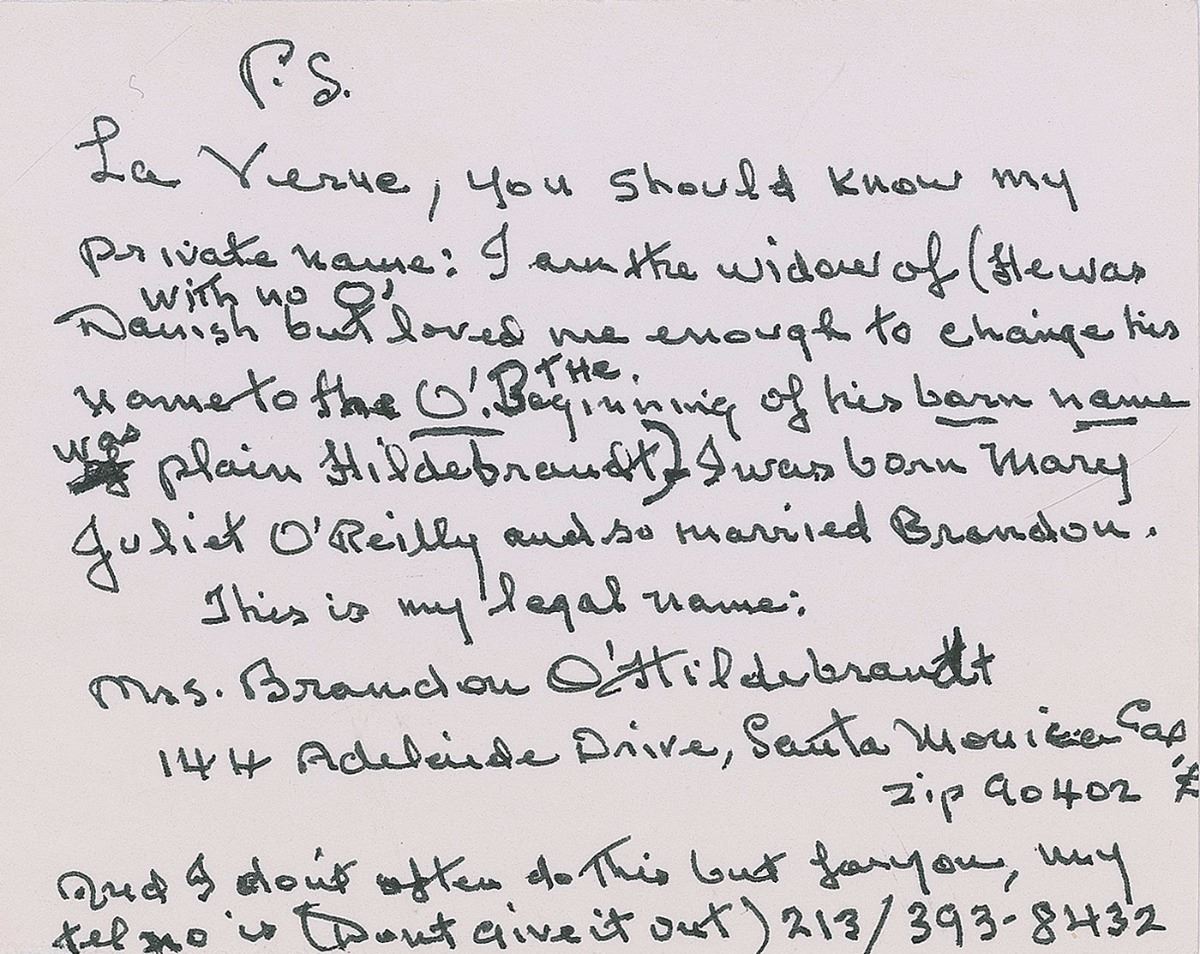 P.S.
La Verne, you should know my
private name: I am the widow of (He was
with no O'
Danish but loved me enough to change his
name to the O'. THE Beginning of his born name
was plain Hildebrandt) I was born Mary
Juliet O'Reilly and so married Brandon.
This is my legal name:
Mrs. Brandon O'Hildebrandt
144 Adelaide Drive, Santa Monica Cal
Zip 90402
And I don't often do this but for you, my
tel no is (Dont give it out) 213/393-8432